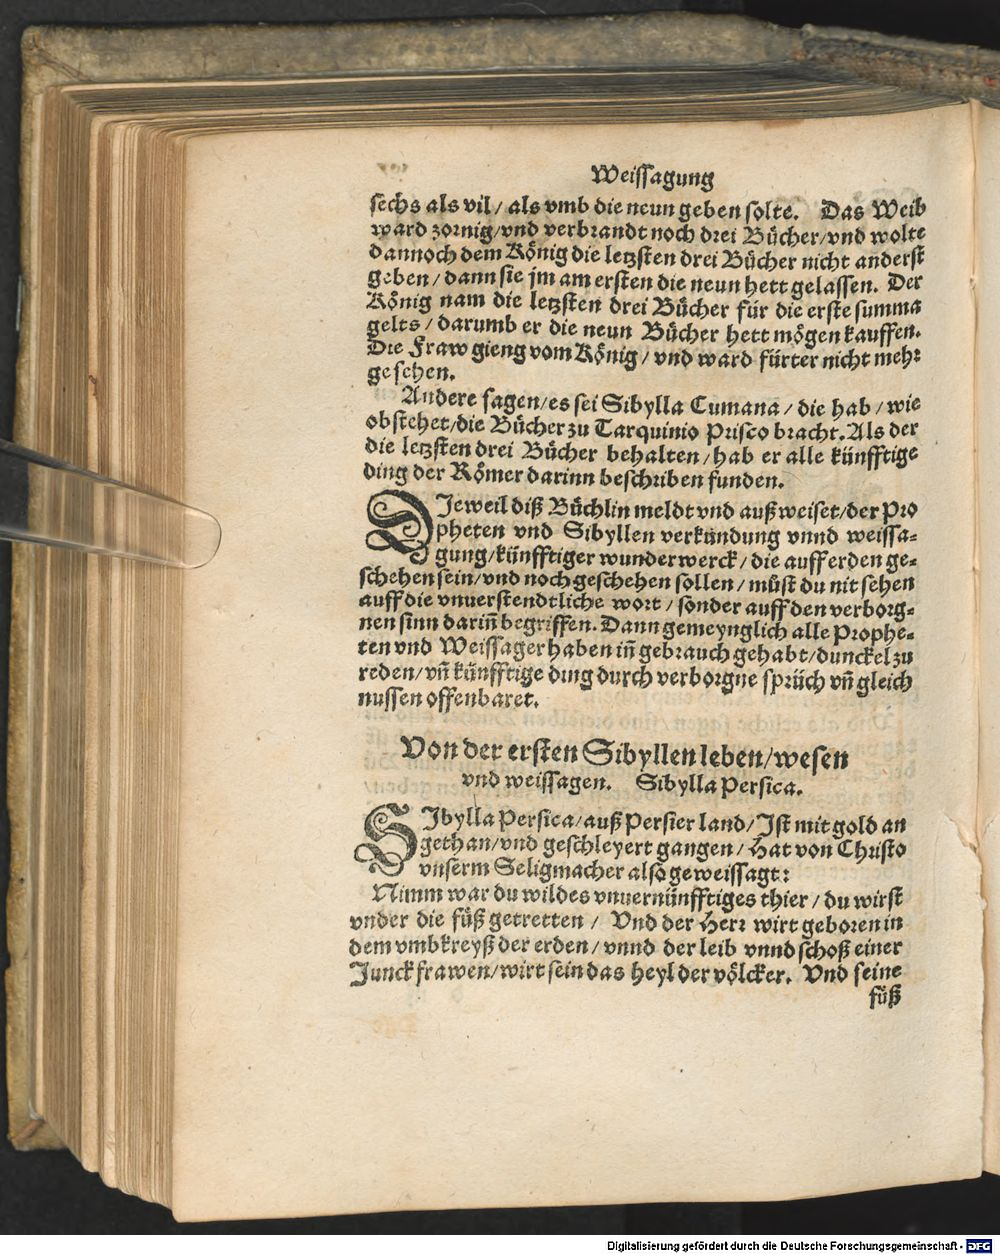 Weissagung
sechs als vil / als vmb die neun geben solte. Das Weib
ward zornig/vnd verbrandt noch drei Bücher/vnd wolte
dannoch dem König die letzsten drei Bücher nicht anderst
geben / dann sie jm am ersten die neun hett gelassen. Der
König nam die letzsten drei Bücher für die erste summa
gelts / darumb er die neun Bücher hett mögen kauffen.
Die Fraw gieng vom König / vnd ward fürter nicht mehr
gesehen.
Andere sagen/es sei Sibylla Cumana / die hab / wie
obstehet/die Bücher zu Tarquinio Prisco bracht. Als der
die letzsten drei Bücher behalten/hab er alle künfftige
ding der Römer darinn beschriben funden.
DJeweil diß Büchlin meldt vnd außweiset/der Pro
pheten vnd Sibyllen verkündung vnnd weissa-
gung/künfftiger wunderwerck / die auff erden ge-
schehen sein/vnd noch geschehen sollen / müst du nit sehen
auff die vnuerstendtliche wort / sonder auff den verborg-
nen sinn dariñ begriffen. Dann gemeynglich alle Prophe-
ten vnd Weissager haben iñ gebrauch gehabt/dunckel zu
reden/vñ künfftige ding durch verborgne sprüch vñ gleich
nussen offenbaret.
Von der ersten Sibyllen leben/wesen
vnd weissagen. Sibylla Persica.
SJbylla Persica/auß Persier land/Jst mit gold an
gethan/vnd geschleyert gangen / Hat von Christo
vnserm Seligmacher also geweissagt:
Nimm war du wildes vnuernünfftiges thier / du wirst
vnder die füß getretten / Vnd der Herr wirt geboren in
dem vmbkreyß der erden / vnnd der leib vnnd schoß einer
Junckfrawen/wirt sein das heyl der völcker. Vnd seine
füß
Digitalisierung gefördert durch die Deutsche Forschungsgemeinschaft - DFG